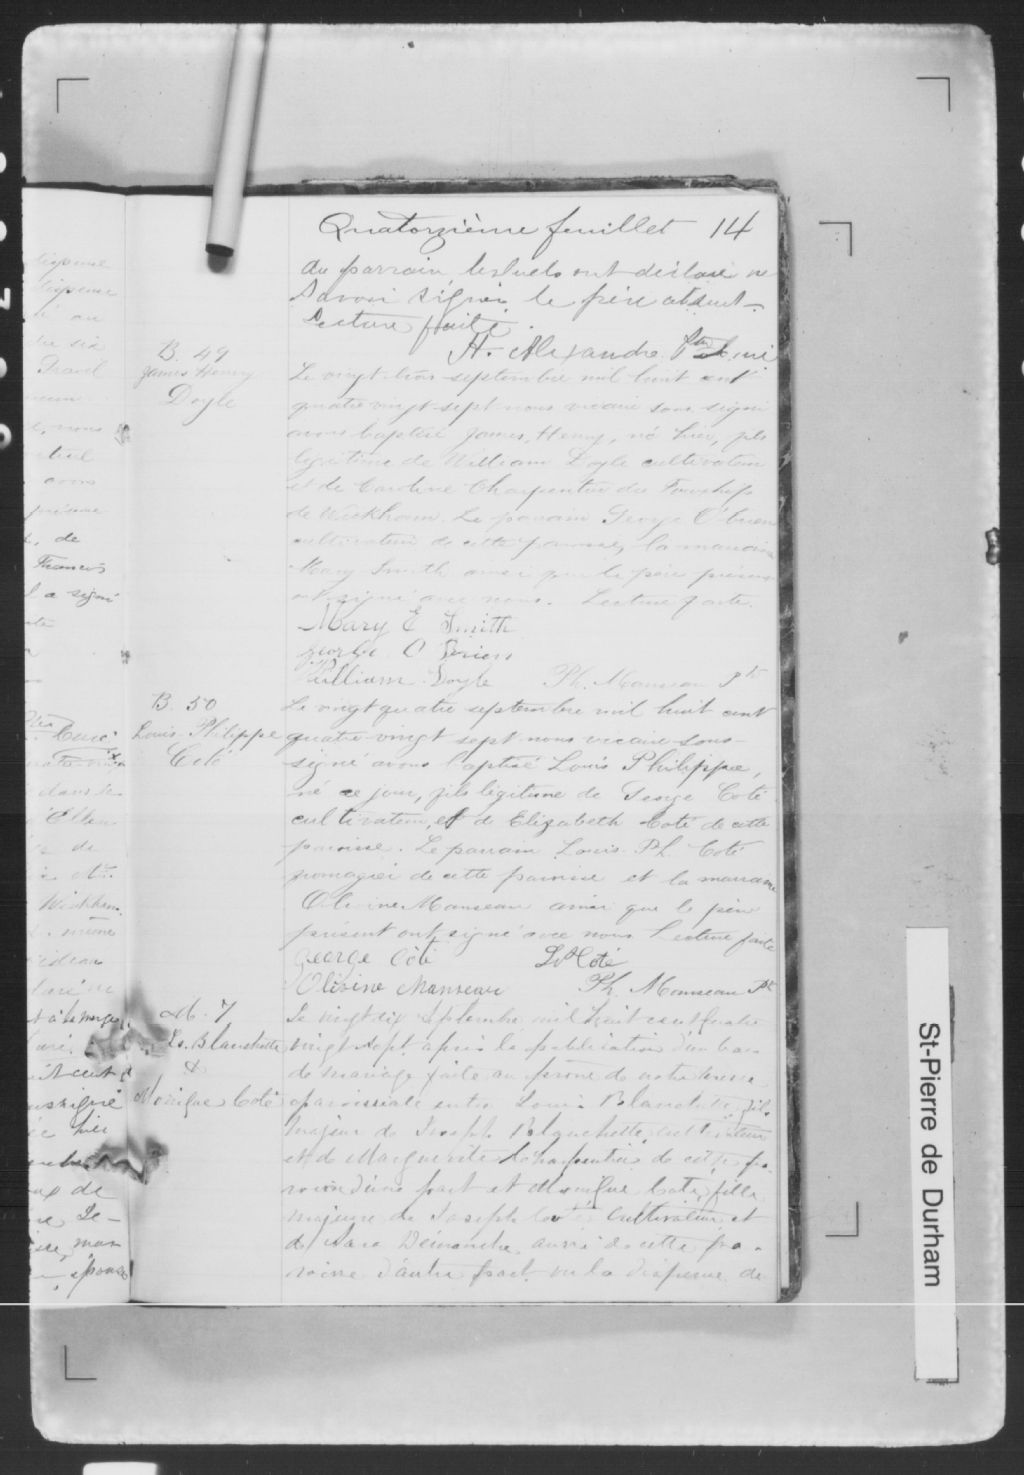 Quatorzième feuillet 14
du parrain, lesquels ont déclaré ne
savoir signer le père absent
Lecture faite.
A. Alexandre Ptre Curé
B. 49
James Henry
Doyle
Le vingt-trois septembre mil huit cent
quatre vingt-sept nous vicaire sous signé
avons baptisé James, Henry, né hier, fils
légitime de William Doyle cultivateur
et de Caroline Charpentier du Township
de Wickham. Le parrain George O'brien
cultivateur de cette paroisse, la marraine
Mary Smith ainsi que le père présent
ont signé avec nous. Lecture faite.
Mary E Smith
George O Brien
William Doyle Ph. Manseau Ptr
B. 50
Louis-Philippe
Coté
Le vingt quatre septembre mil huit cent
quatre-vingt sept nous vicaire sous-
signé avons baptisé Louis Philippe,
né ce jour, fils légitime de George Coté
cultivateur, et de Elizabeth Coté de cette
paroisse. Le parrain Louis Ph. Coté
fromagier de cette paroisse et la marraine
Olivine Manseau ainsi que le père
présent ont signé avec nous Lecture faite
George Coté Ls Ph Coté
Olivine Manseau Ph. Manseau Ptr
M. 7
Ls. Blanchette
&
Monique Coté
Le vingt six septembre mil huit cent quatre
vingt sept après la publication d'un ban
de mariage faite au prône de notre messe
paroissiale entre Louis Blanchette, fils
majeur de Joseph Blanchette cultivateur
et de Marguerite Charpentier de cette pa-
roisse d'une part et Monique Coté, fille
majeure de Joseph Coté cultivateur et
de Demanche aussi de cette pa-
roisse d'autre part vu la dispense de
St-Pierre de Durham